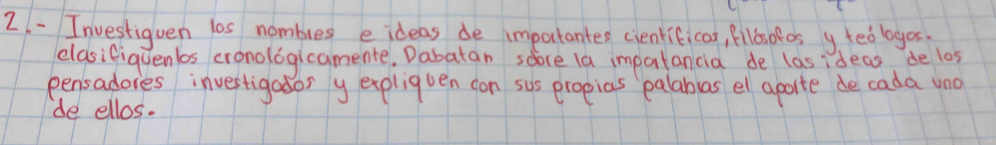 2.- Investiguen los nombres e ideas de importantes cientificos, filósofos y teólogos.
clasifiquenlos cronológicamente. Dabatan sobre la importancia de las ideas de los
pensadores investigados y expliquen con sus propias palabras el aporte de cada uno
de ellos.